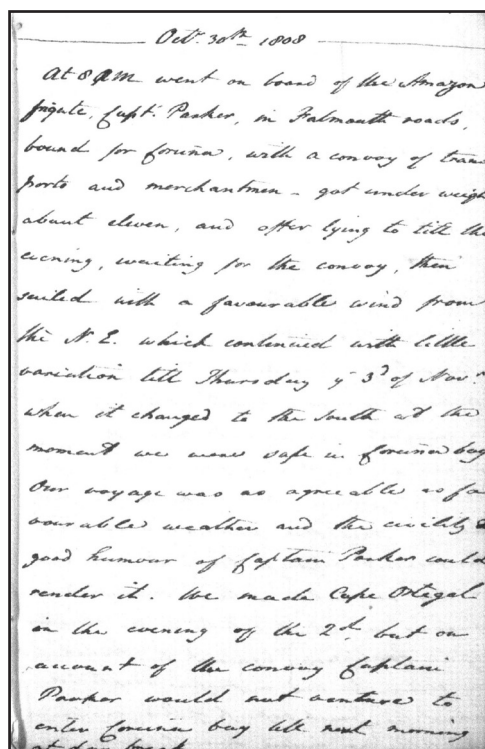 Oct. 30th 1808
At 8 AM went on board of the Amazon
frigate, Capt. Parker, in Falmouth roads,
bound for Coruña, with a convoy of trans
ports and merchantmen - got under weigh
about eleven, and after lying to till the
evening, waiting for the convoy, then
sailed with a favourable wind from
the N.E. which continued with little
variation till Thursday ye 3d of Novr.
when it changed to the South at the
moment we were safe in Coruña bay
Our voyage was as agreeable as fa
vourable weather and the civility &
good humour of Captain Parker could
render it. We made Cape Ortegal
in the evening of the 2d, but on
account of the convoy Captain
Parker would not venture to
enter Coruña bay till next morning
at day break